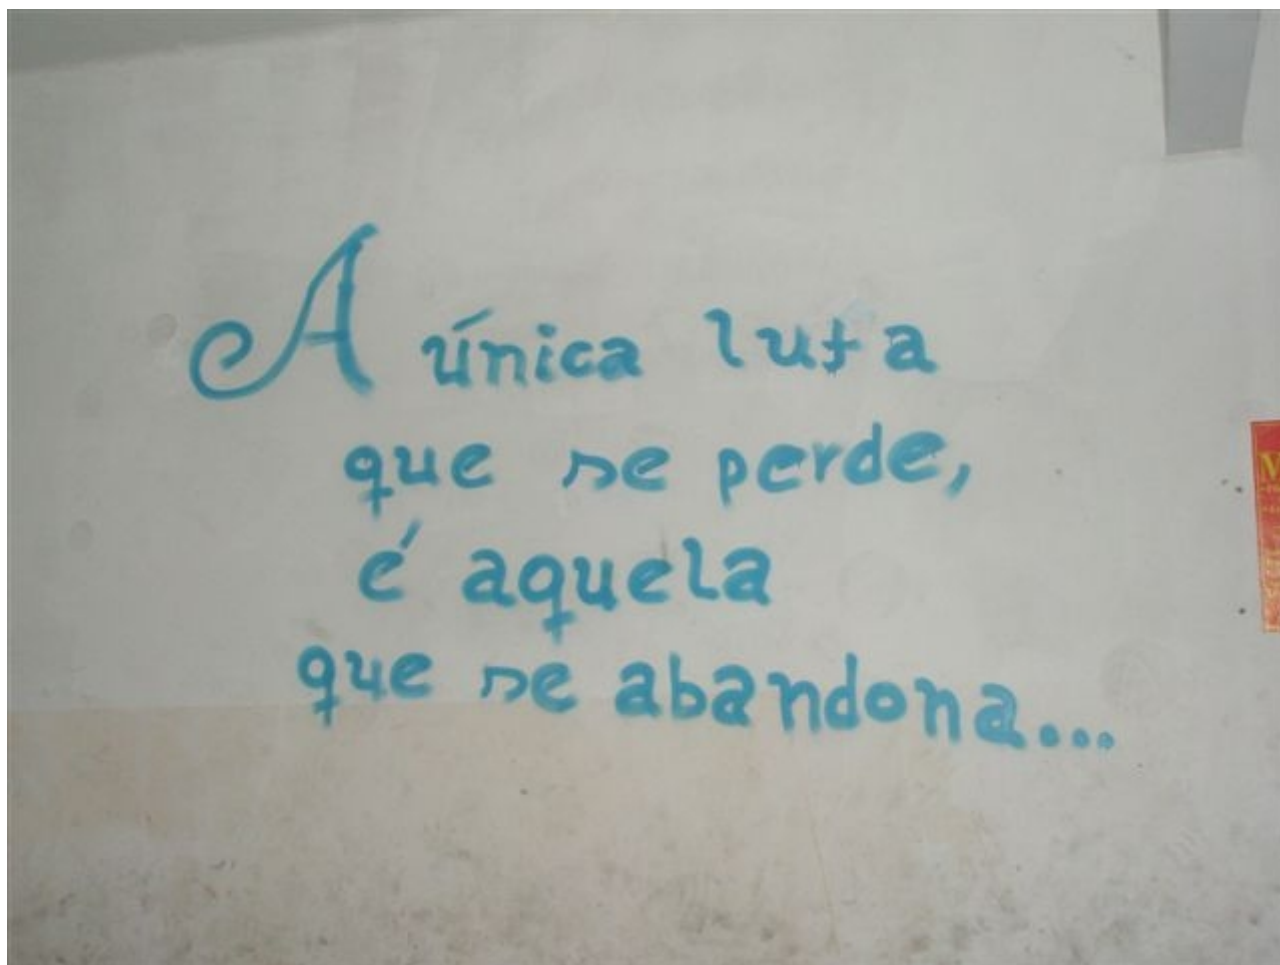 A única luta
que se perde,
é aquela
que se abandona...